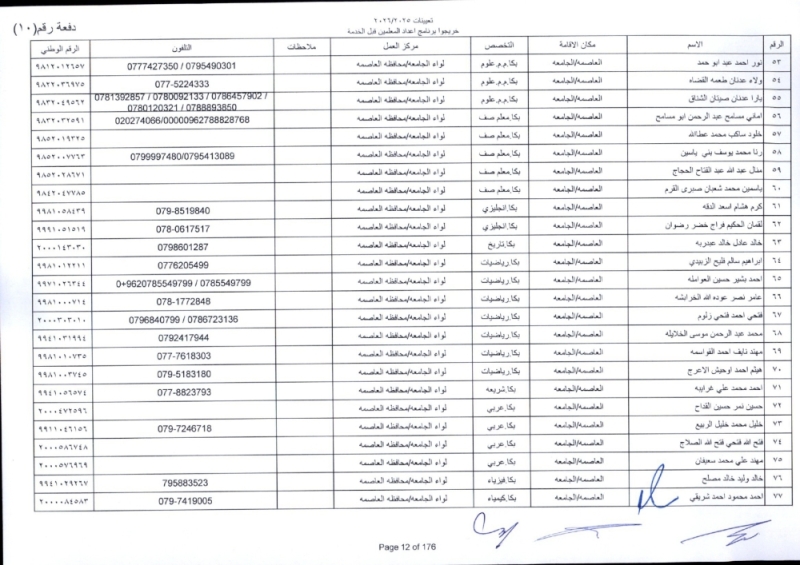 تعيينات ٢٠٢٦/٢٠٢٥
خريجوا برنامج اعداد المعلمين قبل الخدمة
دفعة رقم(١٠)
الرقم الاسم مكان الاقامة التخصص مركز العمل ملاحظات التلفون الرقم الوطني
٥٣ نور احمد عبد ابو حمد العاصمه/الجامعه بكا.م.م.علوم لواء الجامعه/محافظه العاصمه 0777427350 / 0795490301 ٩٨١٢٠١٢٦٥٧
٥٤ ولاء عدنان طعمه القضاه العاصمه/الجامعه بكا.م.م.علوم لواء الجامعه/محافظه العاصمه 077-5224333 ٩٨٢٢٠٣٦٩٧٥
٥٥ يارا عدنان صيتان الشناق العاصمه/الجامعه بكا.م.م.علوم لواء الجامعه/محافظه العاصمه 0781392857 / 0780092133 / 0786457902 / 0780120321 / 0788893850 ٩٨٣٢٠٤٩٥٦٧
٥٦ اماني مسامح عبد الرحمن ابو مسامح العاصمه/الجامعه بكا.معلم صف لواء الجامعه/محافظه العاصمه 020274066/00000962788828768 ٩٨٣٢٠٣٢٥٩١
٥٧ خلود ساكب محمد عطاالله العاصمه/الجامعه بكا.معلم صف لواء الجامعه/محافظه العاصمه ٩٨٥٢٠١٩٣٢٥
٥٨ رنا محمد يوسف بني ياسين العاصمه/الجامعه بكا.معلم صف لواء الجامعه/محافظه العاصمه 0799997480/0795413089 ٩٨٥٢٠٠٧٧٦٣
٥٩ منال عبد الله عبد الفتاح الحجاج العاصمه/الجامعه بكا.معلم صف لواء الجامعه/محافظه العاصمه ٩٨٥٢٠٢٨٦٧١
٦٠ ياسمين محمد شعبان صبرى القرم العاصمه/الجامعه بكا.معلم صف لواء الجامعه/محافظه العاصمه ٩٨٤٢٠٤٧٧٨٥
٦١ كرم هشام اسعد الدقه العاصمه/الجامعه بكا.انجليزي لواء الجامعه/محافظه العاصمه 079-8519840 ٩٩٨١٠٥٨٤٣٩
٦٢ لقمان الحكيم فراج خضر رضوان العاصمه/الجامعه بكا.انجليزي لواء الجامعه/محافظه العاصمه 078-0617517 ٩٩٩١٠٥١٥١٩
٦٣ خالد عادل خالد عبدربه العاصمه/الجامعه بكا.تاريخ لواء الجامعه/محافظه العاصمه 0798601287 ٢٠٠٠١٤٣٠٣٠
٦٤ ابراهيم سالم فليح الزبيدي العاصمه/الجامعه بكا.رياضيات لواء الجامعه/محافظه العاصمه 0776205499 ٩٩٨١٠١٢٢١١
٦٥ احمد بشير حسين العوامله العاصمه/الجامعه بكا.رياضيات لواء الجامعه/محافظه العاصمه 0+9620785549799 / 0785549799 ٩٩٧١٠٢٦٣٤٤
٦٦ عامر نصر عوده الله الخرابشه العاصمه/الجامعه بكا.رياضيات لواء الجامعه/محافظه العاصمه 078-1772848 ٩٩٨١٠٠٠٧١٤
٦٧ فتحي احمد فتحي زلوم العاصمه/الجامعه بكا.رياضيات لواء الجامعه/محافظه العاصمه 0796840799 / 0786723136 ٢٠٠٠٣٠٣٠١٠
٦٨ محمد عبد الرحمن موسى الخلايله العاصمه/الجامعه بكا.رياضيات لواء الجامعه/محافظه العاصمه 0792417944 ٩٩٤١٠٣١٩٩٤
٦٩ مهند نايف احمد القواسمه العاصمه/الجامعه بكا.رياضيات لواء الجامعه/محافظه العاصمه 077-7618303 ٩٩٨١٠١٠٧٣٥
٧٠ هيثم احمد اوحيش الاعرج العاصمه/الجامعه بكا.رياضيات لواء الجامعه/محافظه العاصمه 079-5183180 ٩٩٨١٠٠٣٧٤٥
٧١ احمد محمد علي غرايبه العاصمه/الجامعه بكا.شريعه لواء الجامعه/محافظه العاصمه 077-8823793 ٩٩٤١٠٥٦٥٧٤
٧٢ حسين نمر حسين القداح العاصمه/الجامعه بكا.عربي لواء الجامعه/محافظه العاصمه ٢٠٠٠٤٧٢٥٩٦
٧٣ خليل محمد خليل الربيع العاصمه/الجامعه بكا.عربي لواء الجامعه/محافظه العاصمه 079-7246718 ٩٩١١٠٤٦١٥٦
٧٤ فتح الله فتحي فتح الله الصلاج العاصمه/الجامعه بكا.عربي لواء الجامعه/محافظه العاصمه ٢٠٠٠٥٨٦٧٤٨
٧٥ مهند علي محمد سعيفان العاصمه/الجامعه بكا.عربي لواء الجامعه/محافظه العاصمه ٢٠٠٠٥٧٦٩٦٩
٧٦ خالد وليد خالد مصلح العاصمه/الجامعه بكا.فيزياء لواء الجامعه/محافظه العاصمه 795883523 ٩٩٤١٠٢٩٢٦٧
٧٧ احمد محمود احمد شريقي العاصمه/الجامعه بكا.كيمياء لواء الجامعه/محافظه العاصمه 079-7419005 ٢٠٠٠٠٨٤٥٨٣
Page 12 of 176